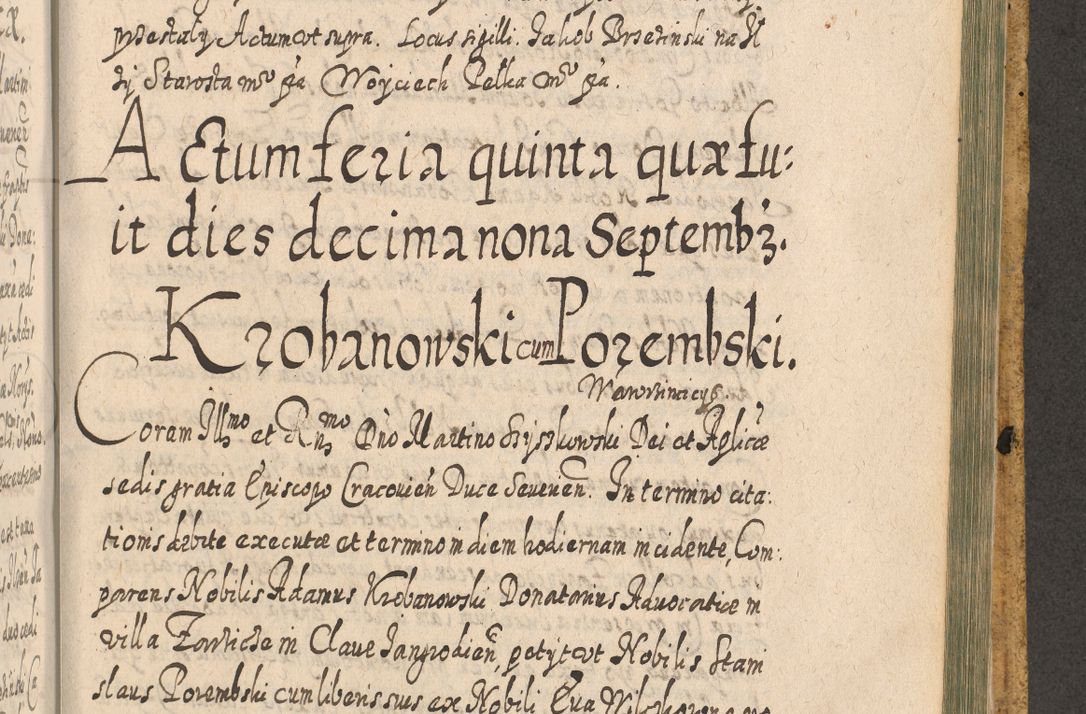 przestały Actum ut supra. Locus sigilli. Jakob Brzezinski na
Starosta mẽ ꝑa Woyciech Pełka mẽ ꝑa.
Actum feria quinta quæ fu:
it dies decima nona Septembʒ.
Krobanowski cum Porembski.
Wawrzincicys
Coram Illmo et Rmo Dño Martino Szyszkowski Dei et Aplicæ
sedis gratia Episcopo Cracovieñ Duce Severieñ. In termino cita:
tionis debite executæ et termino in diem hodiernam incidente, Com:
parens Nobilis Adamus Krobanowski Donatarius Advocatiæ in
villa Zawicze in Clave Jangrodieñ, petyt ut Nobilis Stani
slaus Porembski cum liberis suis ex Nobili Eva